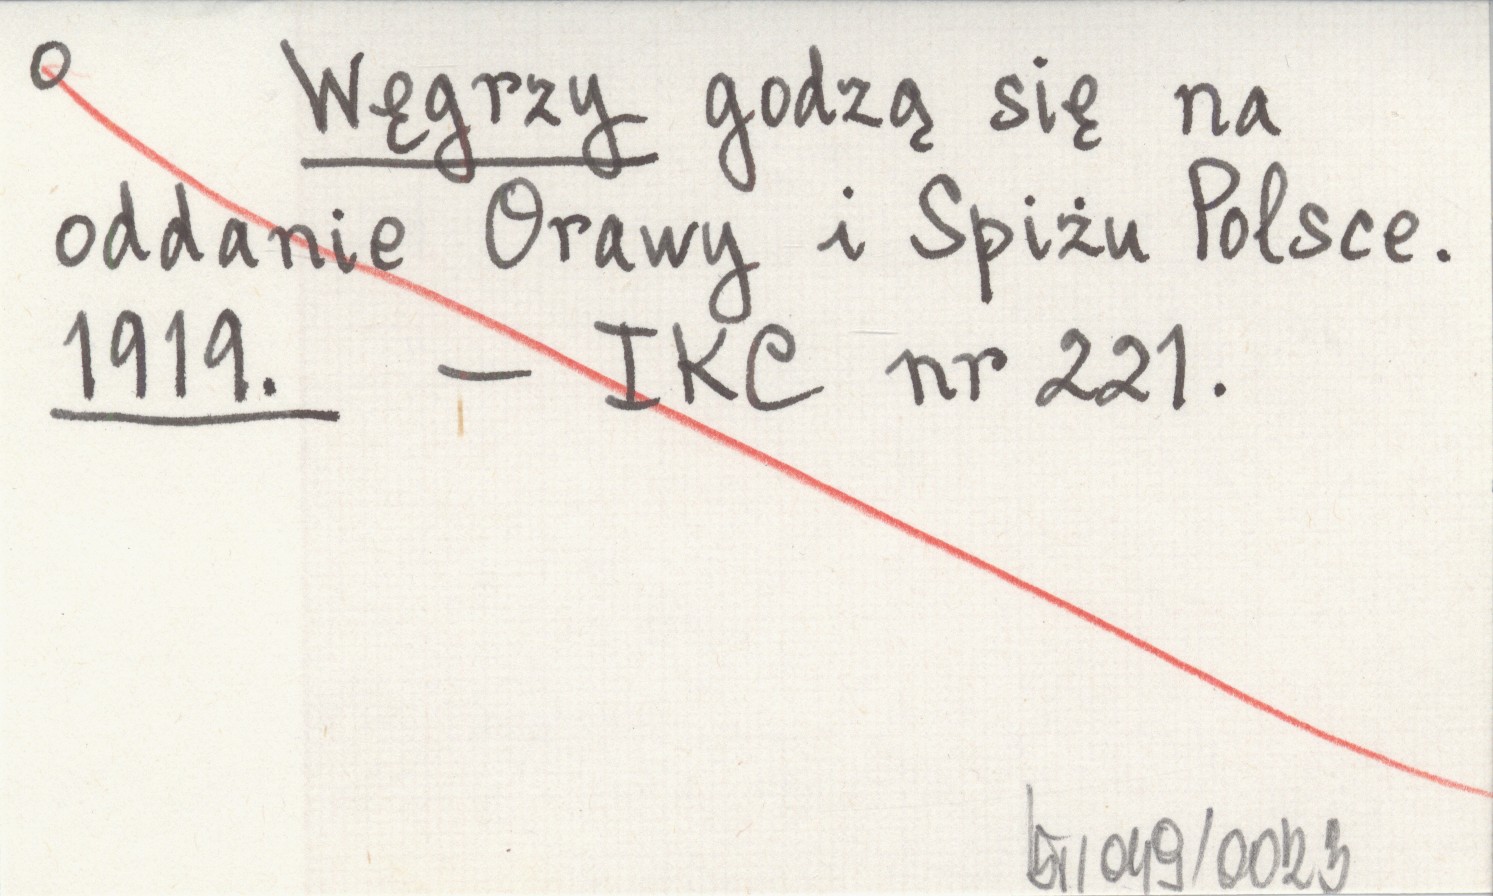 Węgrzy godzą się na
oddanie Orawy i Spiżu Polsce.
1919. — IKC nr 221.